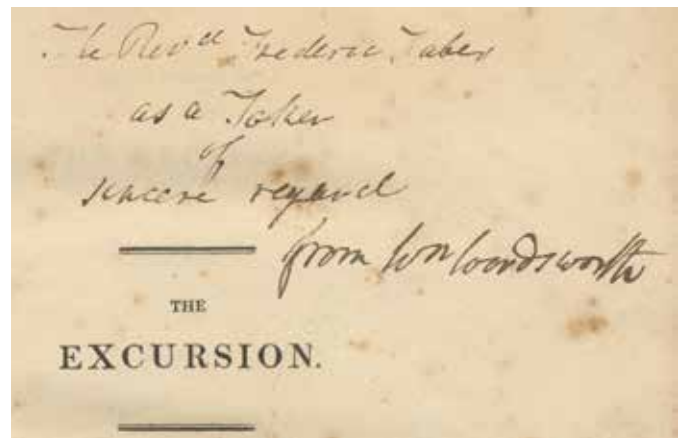 The Revd. Frederic Faber
as a Token
of
sincere regard
from Wm Wordsworth
THE
EXCURSION.